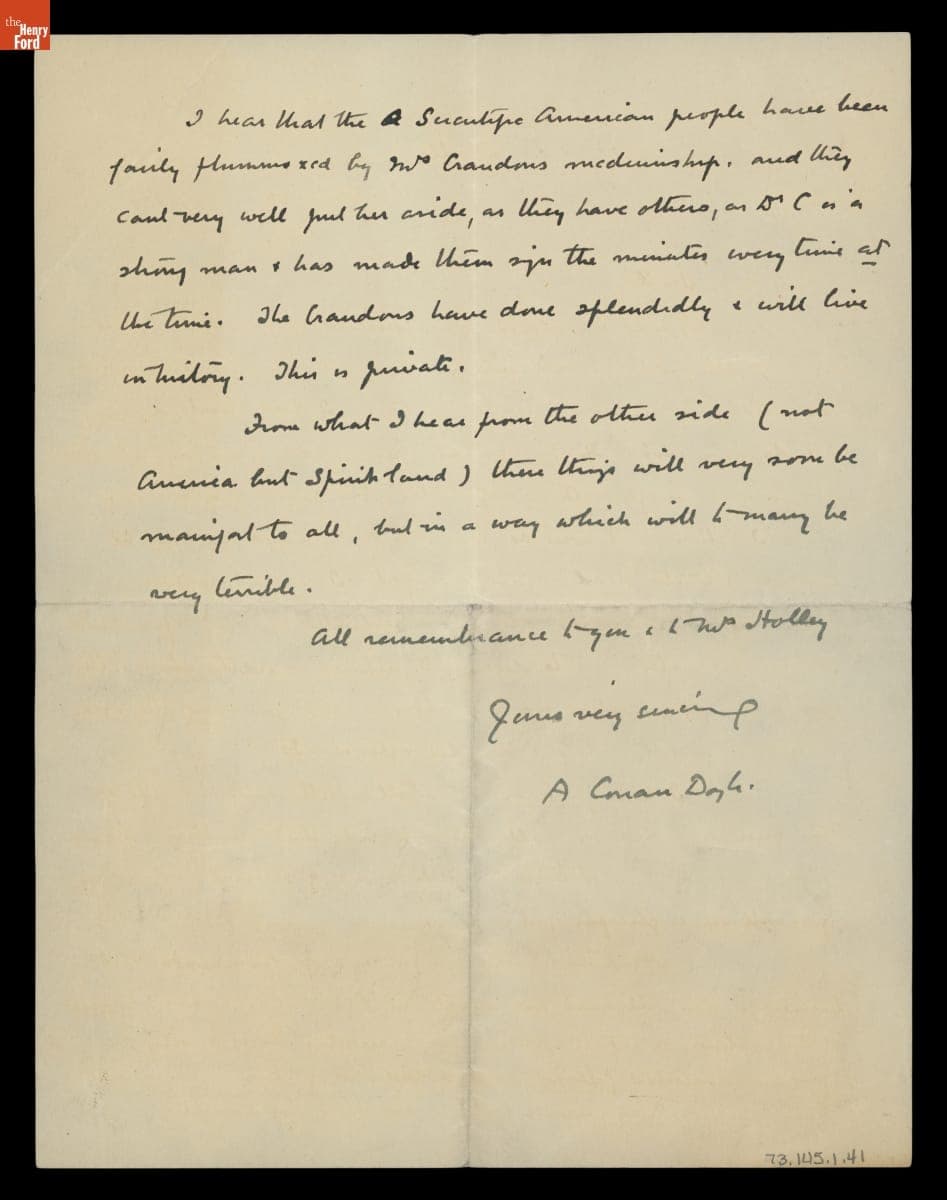 the
Henry
Ford
I hear that the Scientific American people have been
fairly flummoxed by Mrs Crandons mediumship. and they
cant very well put her aside, as they have others, as Dr C is a
strong man & has made them sign the minutes every time at
the time. The Crandons have done splendidly & will live
in history. This is private.
From what I hear from the other side (not
America but Spirit land) these things will very soon be
manifest to all, but in a way which will to many be
very terrible.
All remembrance to you & to Mrs Holley
Yours very sincerely
A Conan Doyle.
73.145.1.41